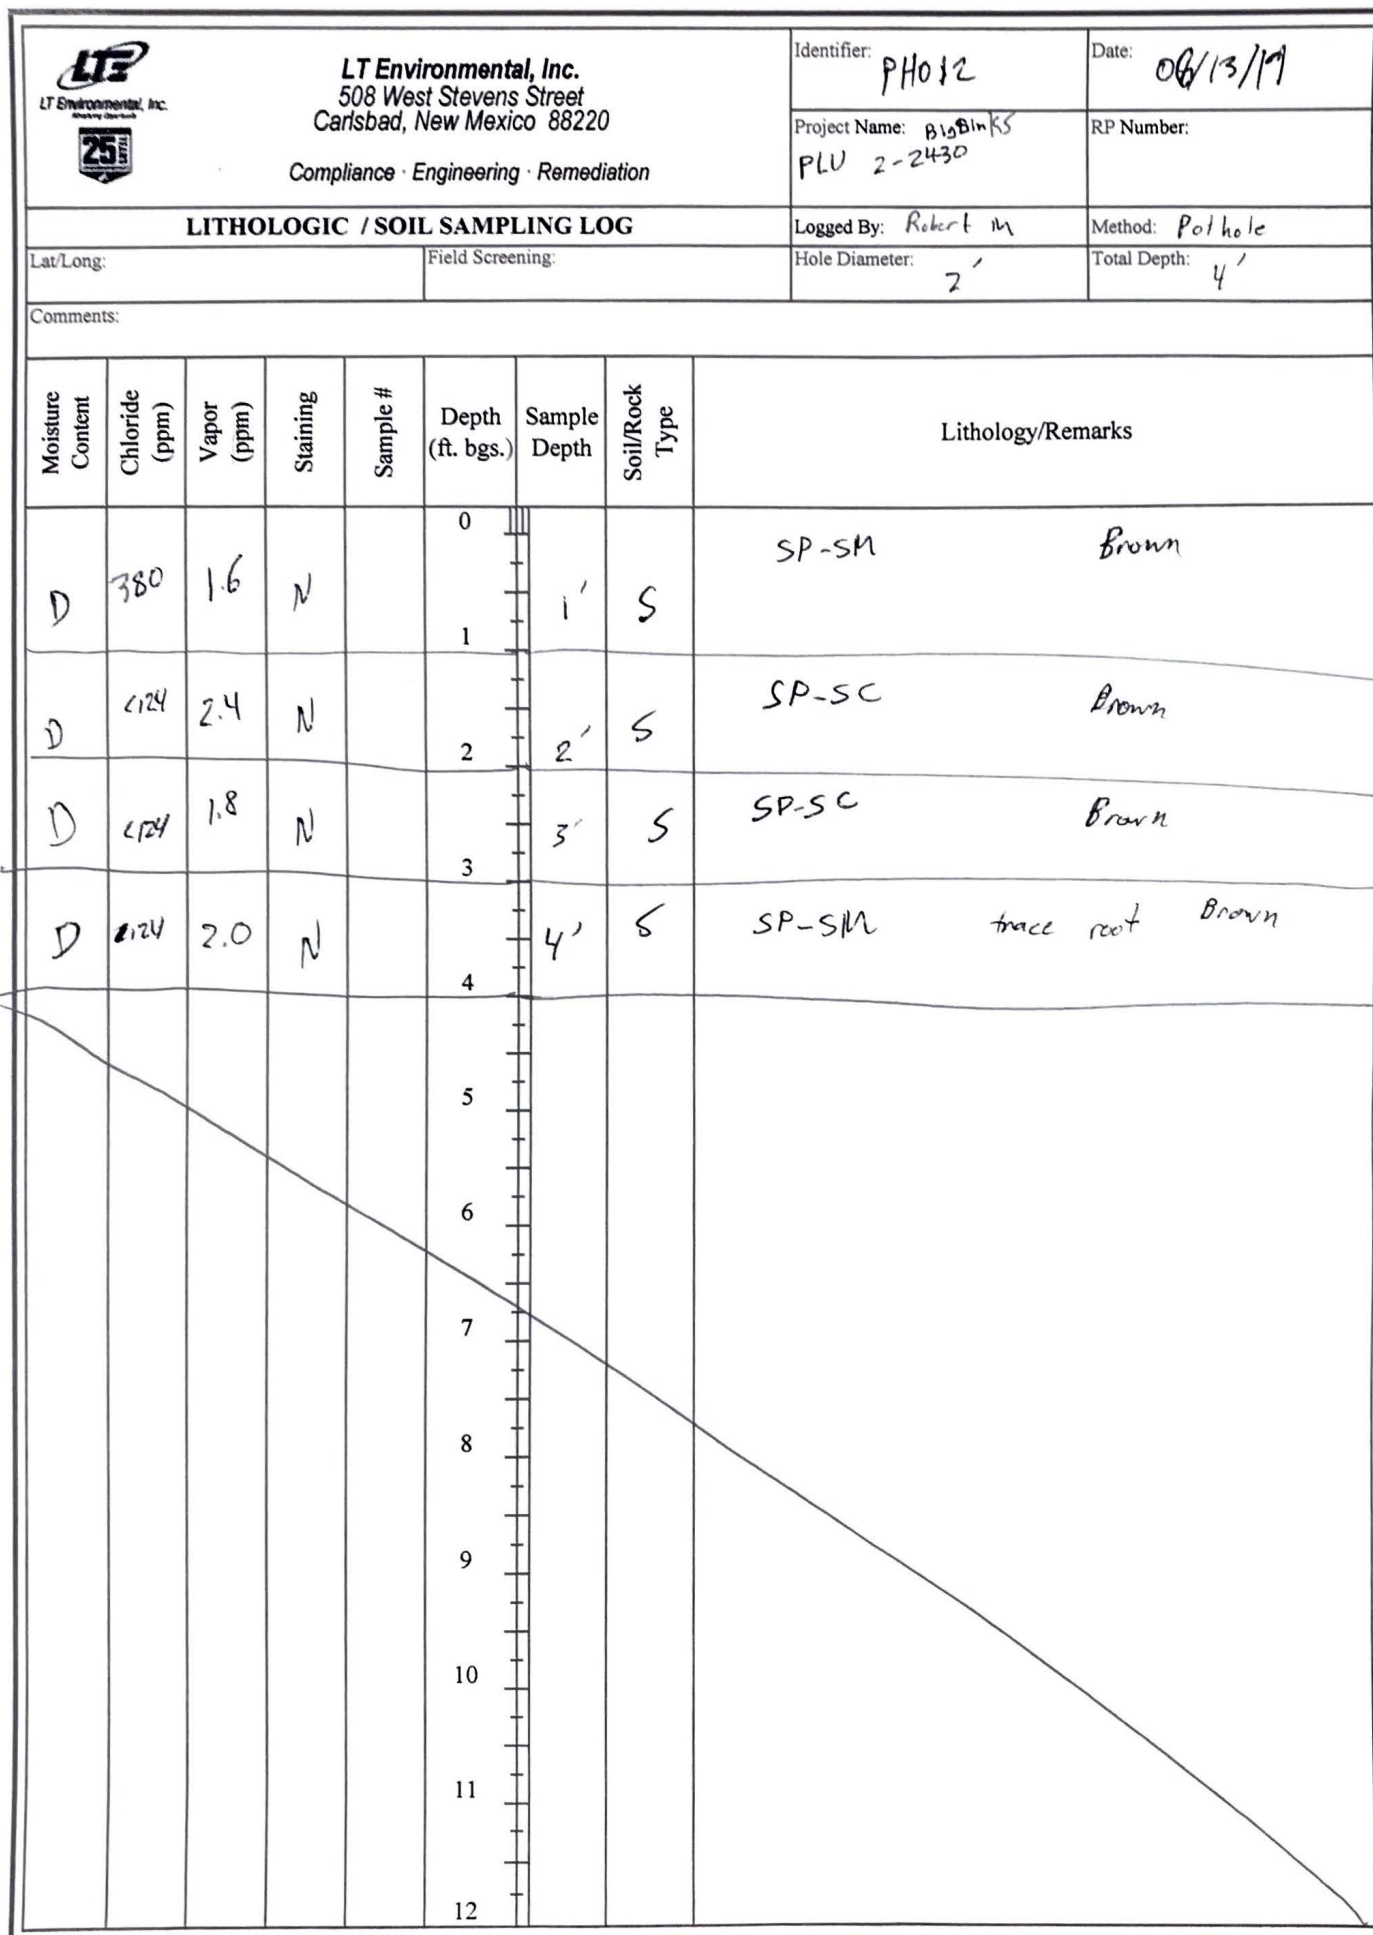 LTE
LT Environmental, Inc.
25
LT Environmental, Inc.
508 West Stevens Street
Carlsbad, New Mexico 88220
Compliance · Engineering · Remediation
Identifier: PH012
Date: 06/13/19
Project Name: BigSinks
PLU 2-2430
RP Number:
LITHOLOGIC / SOIL SAMPLING LOG
Logged By: Robert M
Method: Pothole
Lat/Long:
Field Screening:
Hole Diameter: 2'
Total Depth: 4'
Comments:
Moisture Content
Chloride (ppm)
Vapor (ppm)
Staining
Sample #
Depth (ft. bgs.)
Sample Depth
Soil/Rock Type
Lithology/Remarks
0
D 380 1.6 N 1' S SP-SM Brown
1
D <124 2.4 N 2' S SP-SC Brown
2
D <124 1.8 N 3' S SP-SC Brown
3
D <124 2.0 N 4' S SP-SM trace root Brown
4
5
6
7
8
9
10
11
12